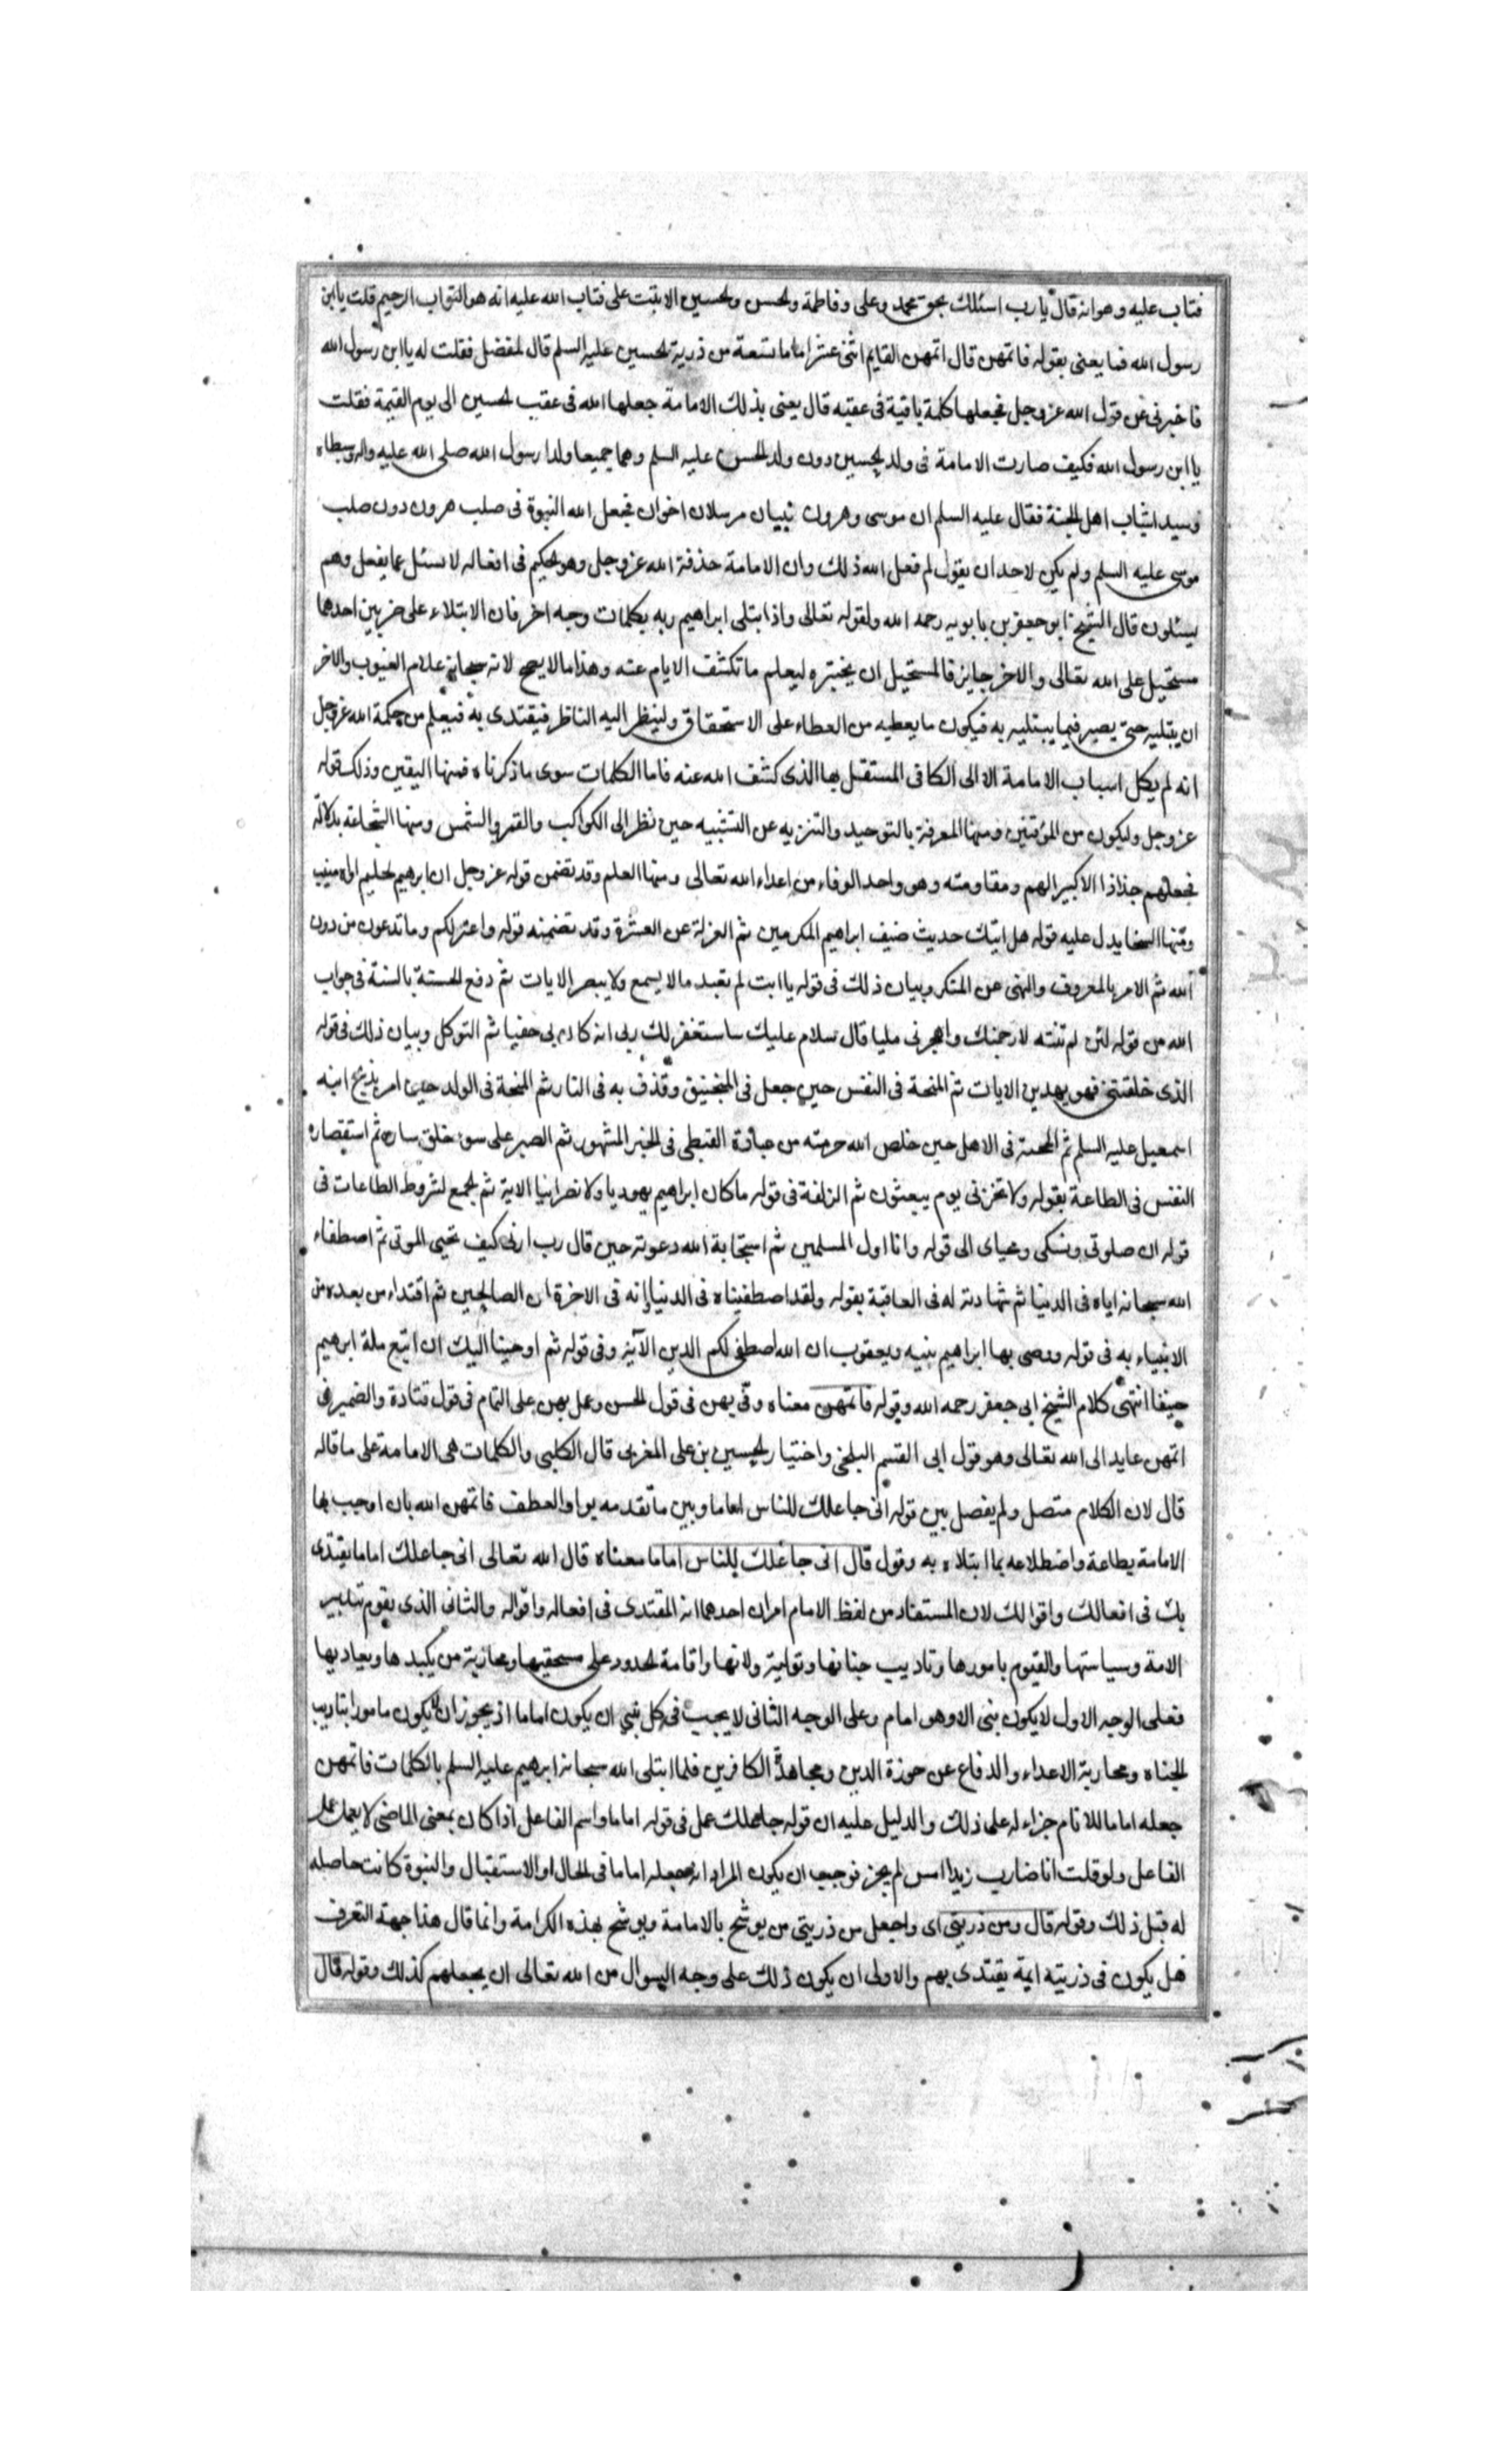 فتاب عليه وهو انه قال يا رب اسئلك بحق محمد وعلى وفاطمة والحسن والحسين الا تبت على فتاب الله عليه انه هو التواب الرحيم قلت يا ابن
رسول الله فما يعنى بقوله فاتمهن قال اتمهن القايم اثنى عشر اماما تسعة من ذرية الحسين عليه السلم قال المفضل فقلت له يا ابن رسول الله
فاخبرنى عن قول الله عز وجل فجعلها كلمة باقية فى عقبه قال يعنى بذلك الامامة جعلها الله فى عقب الحسين الى يوم القيمة فقلت
يا ابن رسول الله فكيف صارت الامامة فى ولد الحسين دون ولد الحسن عليه السلم وهما جميعا ولدا رسول الله صلى الله عليه واله وسبطاه
وسيدا شباب اهل الجنة فقال عليه السلم ان موسى وهرون نبيان مرسلان اخوان فجعل الله النبوة فى صلب هرون دون صلب
موسى عليه السلم ولم يكن لاحد ان يقول لم فعل الله ذلك وان الامامة خذفة الله عز وجل وهو الحكيم فى افعاله لا يسئل عما يفعل وهم
يسئلون قال الشيخ ابو جعفر بن بابويه رحمه الله ولقوله تعالى واذ ابتلى ابراهيم ربه بكلمات وجه اخر فان الابتلاء على ضربين احدهما
مستحيل على الله تعالى والاخر جايز فالمستحيل ان يختبره ليعلم ما تكشف الايام عنه وهذا ما لا يصح لانه سبحانه علام الغيوب والاخر
ان يبتليه حتى يصير فيما يبتليه به فيكون ما يعطيه من العطاء على الاستحقاق ولينظر اليه الناظر فيقتدى به فيعلم من حكمة الله عز وجل
انه لم يكل اسباب الامامة الا الى الكافى المستقل بها الذى كشف الله عنه فاما الكلمات سوى ما ذكرناه فمنها اليقين وذلك قوله
عز وجل وليكون من المؤقنين ومنها المعرفة بالتوحيد والتنزيه عن التشبيه حين نظر الى الكواكب والقمر والشمس ومنها الشجاعة بدلالة
فجعلهم جذاذا الا كبيرا لهم ومقاومته وهو واحد الوفاء من اعداء الله تعالى ومنها العلم وقد تضمن قوله عز وجل ان ابرهيم لحليم اواه منيب
ومنها السخا يدل عليه قوله هل اتيك حديث ضيف ابراهيم المكرمين ثم العزلة عن العشرة وقد تضمنه قوله واعتزلكم وما تدعون من دون
الله ثم الامر بالمعروف والنهى عن المنكر وبيان ذلك فى قوله يا ابت لم تعبد ما لا يسمع ولا يبصر الايات ثم دفع الحسنة بالسنة فى جواب
الله من قوله لئن لم تنته لارجمنك واهجرنى مليا قال سلام عليك ساستغفر لك ربى انه كان بى حفيا ثم التوكل وبيان ذلك فى قوله
الذى خلقتنى فهو يهدين الايات ثم المنحة فى النفس حين جعل فى المنجنيق وقذف به فى النار ثم المنحة فى الولد حين امر بذبح ابنه
اسمعيل عليه السلم ثم المحنة فى الاهل حين خلص الله حرمته من عبادة القبطى فى الخبر المشهور ثم الصبر على سوء خلق ساره ثم استقصاره
النفس فى الطاعة بقوله ولا تخزنى يوم يبعثون ثم الزلفة فى قوله ما كان ابراهيم يهوديا ولا نصرانيا الاية ثم الجمع لشروط الطاعات فى
قوله ان صلوتى ونسكى ومحياى الى قوله وانا اول المسلمين ثم استجابة الله دعوته حين قال رب ارنى كيف تحيى الموتى ثم اصطفاء
الله سبحانه اياه فى الدنيا ثم شهادته له فى العاقبة بقوله ولقد اصطفيناه فى الدنيا وانه فى الاخرة ان الصالحين ثم اقتداء من بعده من
الانبياء به فى قوله ووصى بها ابراهيم بنيه ويعقوب ان الله اصطفى لكم الدين الآية وفى قوله ثم اوحينا اليك ان اتبع ملة ابرهيم
حنيفا انتهى كلام الشيخ ابى جعفر رحمه الله وقوله فاتمهن معناه وفى بهن فى قول الحسن وعمل بهن على التمام فى قول قتادة والضمير فى
اتمهن عايد الى الله تعالى وهو قول ابى القسم البلخى واختيار الحسين بن على المغربى قال الكلبى والكلمات هى الامامة على ما قاله
قال لان الكلام متصل ولم يفصل بين قوله انى جاعلك للناس اماما وبين ما تقدمه بواو العطف فاتمهن الله بان اوجب بها
الامامة بطاعة واضطلاعه بما ابتلاه به وقول قال انى جاعلك للناس اماما معناه قال الله تعالى انى جاعلك اماما يقتدى
بك فى افعالك واقوالك لان المستفاد من لفظ الامام امران احدهما انه المقتدى فى افعاله واقواله والثانى الذى يقوم بتدبير
الامة وسياستها والقيوم بامورها وتاديب جناتها وتولية ولاتها واقامة الحدود على مستحقيها ومحاربة من يكيدها ويعاديها
فعلى الوجه الاول لا يكون نبى الا وهو امام وعلى الوجه الثانى لا يجب فى كل نبى ان يكون اماما اذ يجوز ان لا يكون مامورا بتاديب
الجناه ومحاربة الاعداء والدفاع عن حوزة الدين ومجاهدة الكافرين فلما ابتلى الله سبحانه ابرهيم عليه السلم بالكلمات فاتمهن
جعله اماما للانام جزاء له على ذلك والدليل عليه ان قوله جاعلك عمل فى قوله اماما واسم الفاعل اذا كان بمعنى الماضى لا يعمل عمل
الفاعل ولو قلت انا ضارب زيدا امس لم يجز فوجب ان يكون المراد انه جعله اماما فى الحال او الاستقبال والنبوة كانت حاصله
له قبل ذلك وقوله قال ومن ذريتى اى واجعل من ذريتى من يوشح بالامامة ويوشح بهذه الكرامة وانما قال هذا جهة التعرف
هل يكون فى ذريته ايمة يقتدى بهم والاولى ان يكون ذلك على وجه السوال من الله تعالى ان يجعلهم كذلك وقوله قال